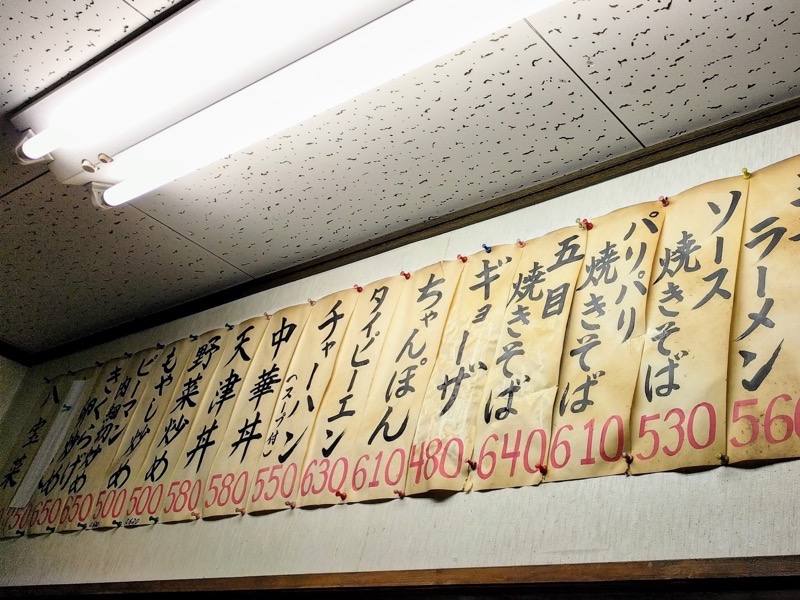 ラーメン
560
ソース
焼きそば
530
パリパリ
焼きそば
610
五目
焼きそば
640
ギョーザ
480
ちゃんぽん
610
タイピーエン
630
チャーハン
(スープ付)
550
中華丼
580
天津丼
580
野菜炒め
500
もやし炒め
500
ピーマン
650
きくらげ
650
八宝菜
750